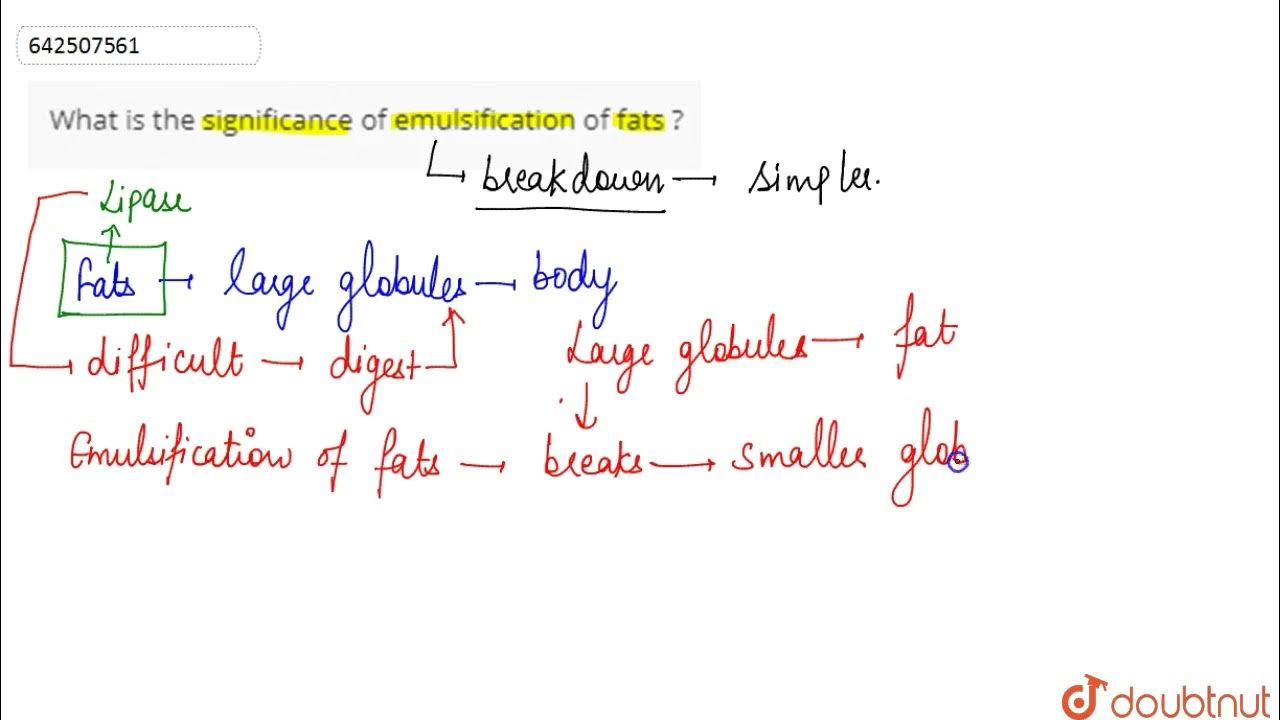 642507561
What is the significance of emulsification of fats ?
↳ breakdown → simpler.
Lipase
↑
fats → large globules → body
difficult → digest
Large globules → fat
↓
Emulsification of fats → breaks → smaller glob
doubtnut